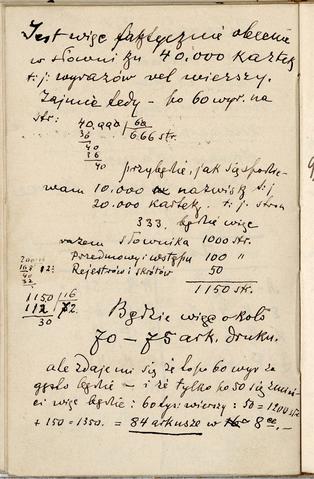 Jest więc faktycznie obecnie
w słowniku 40.000 kartek
t. j. wyrazów vel wierszy.
Zajmie tedy – po 60 wyr. na
str: 40.000 | 60
36 666 str.
40
36
40
przybędzie, jak się spodzie-
wam 10.000 nazwisk t. j.
20.000 kartek, t. j. stron
333. będzie więc
razem słownika 1000 str.
Przedmowy i wstępu 100 "
Rejestrów i skrótów 50
1150 str.
1150 | 16
112 72.
30
Będzie więc około
70 – 75 ark. druku.
ale zdaje mi się że to po 60 wyr za
gęsto będzie – i że tylko po 50 się zmieś-
ci więc będzie: 60 tys: wierszy : 50 = 1200 str
+ 150 = 1350. = 84 arkusze w 8